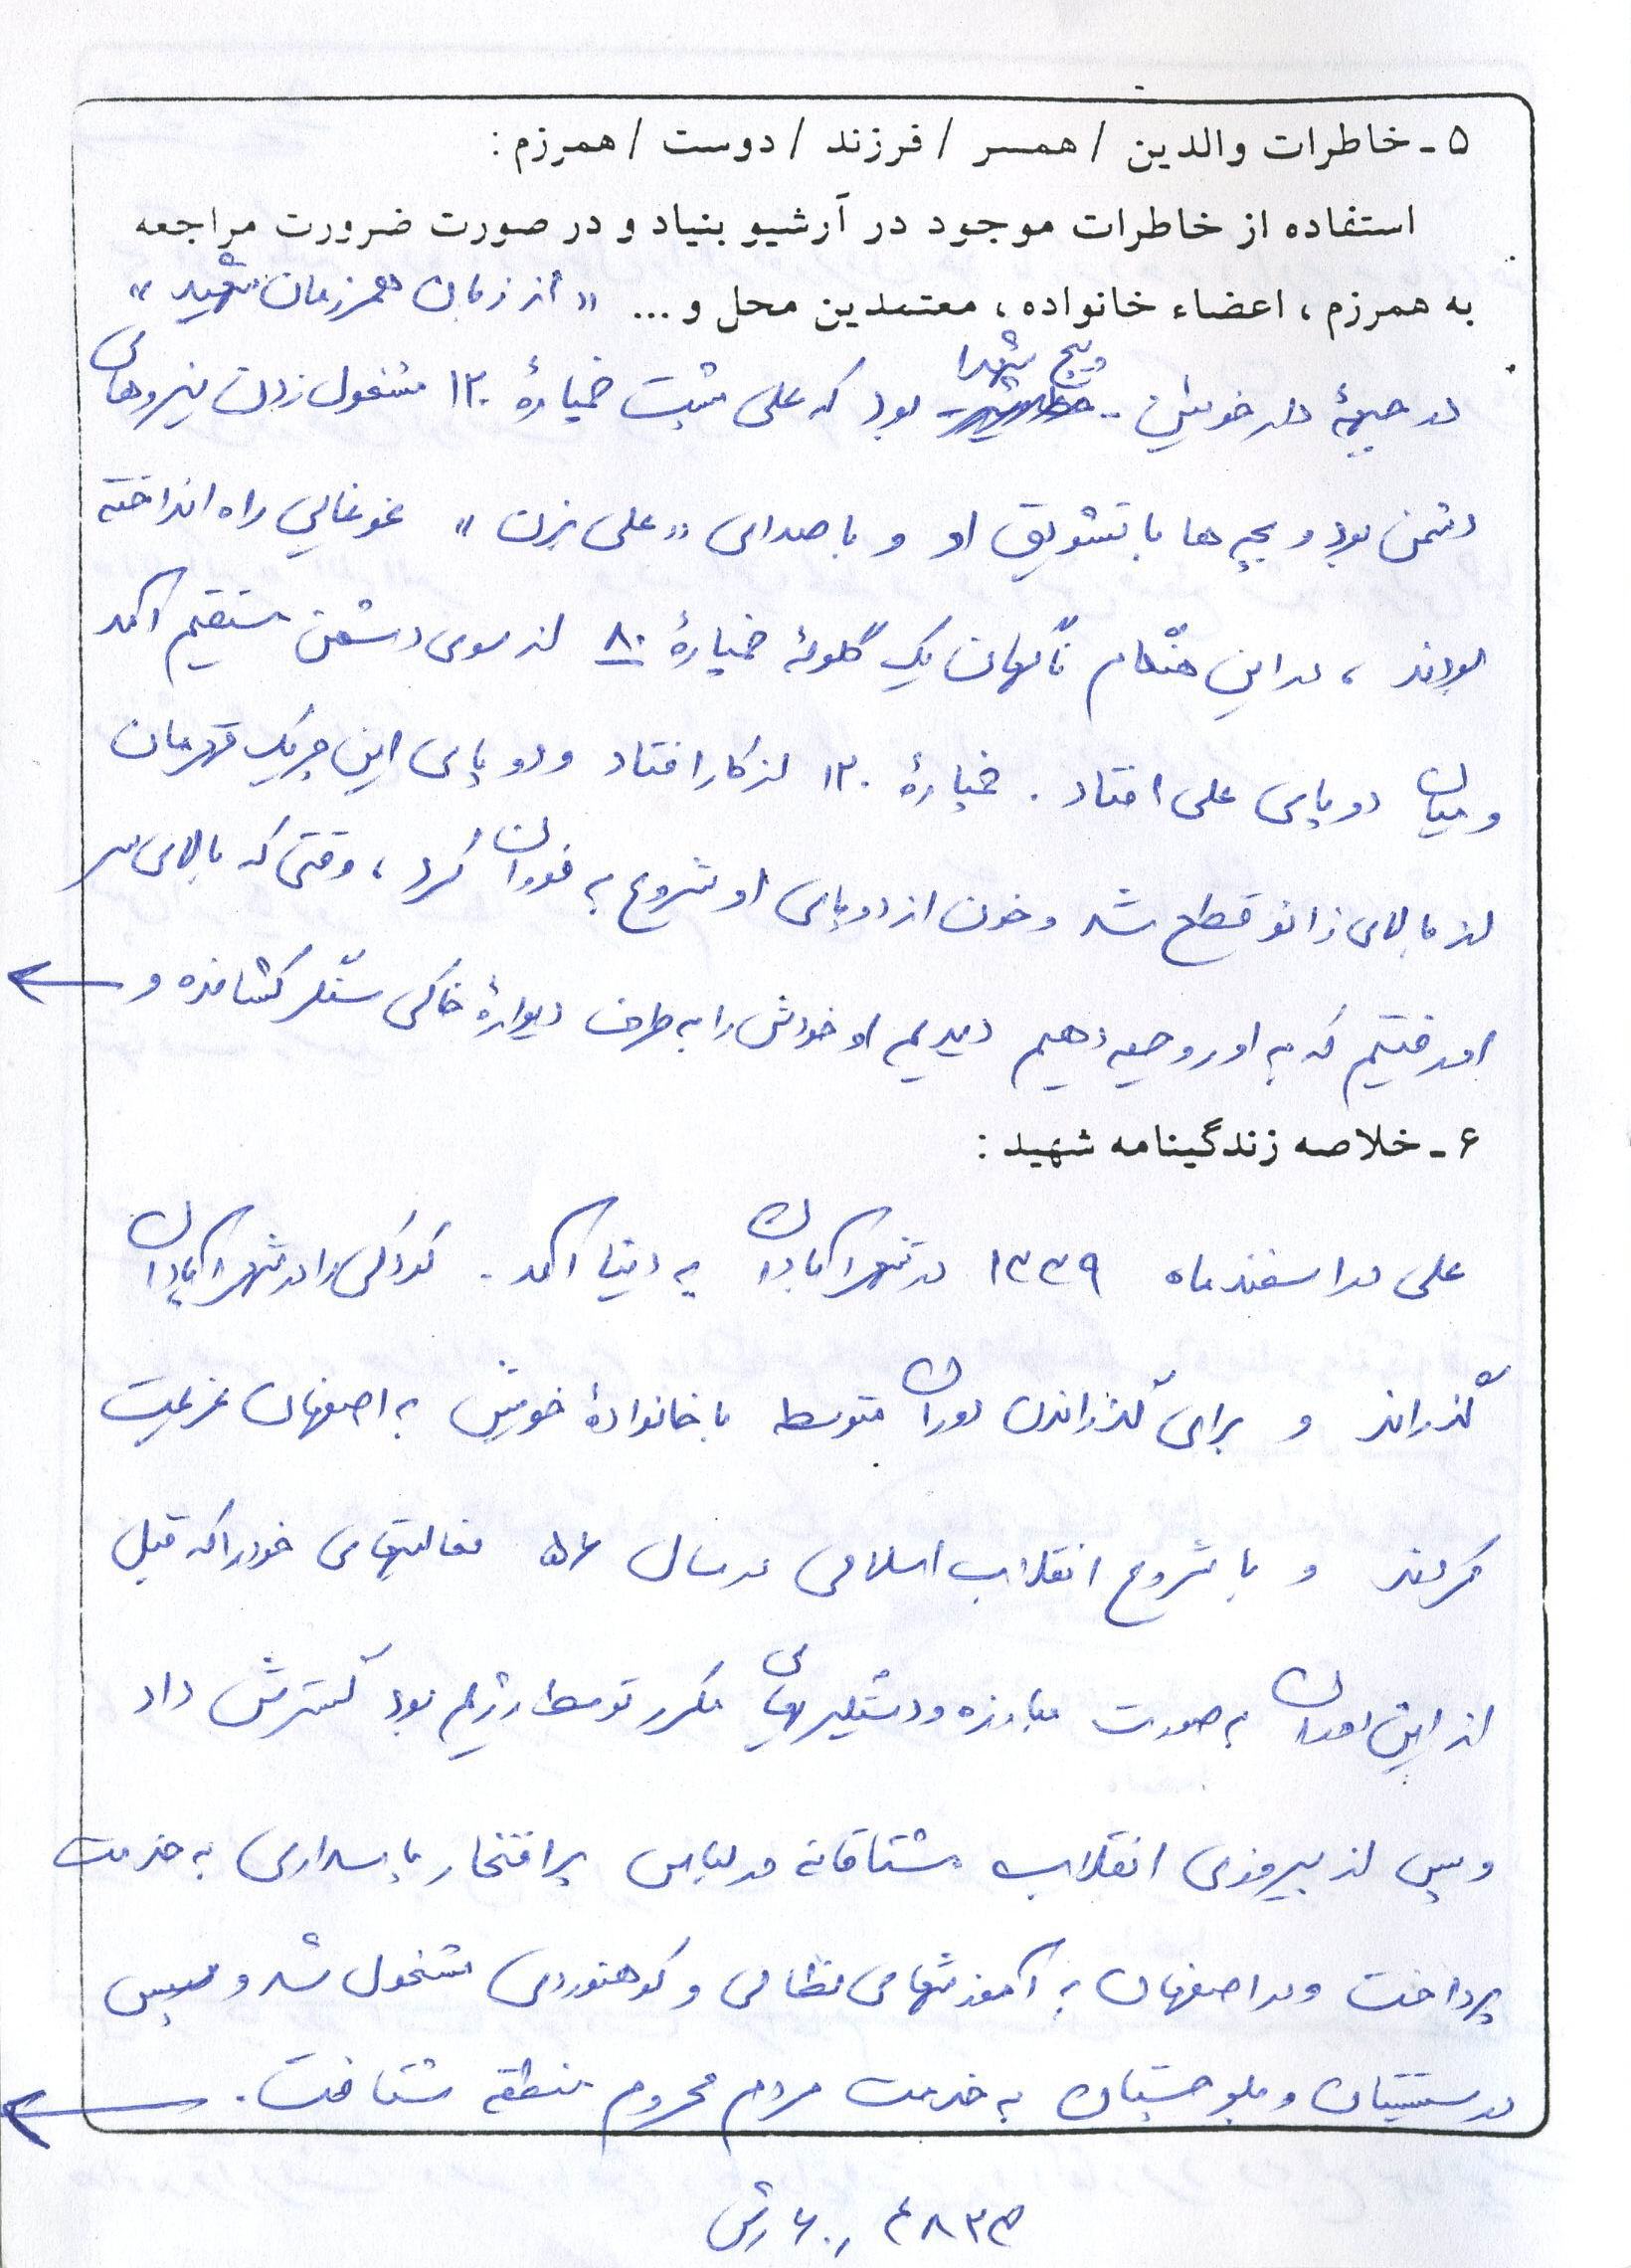 ۵ ـ خاطرات والدین / همسر / فرزند / دوست / همرزم :
استفاده از خاطرات موجود در آرشیو بنیاد و در صورت ضرورت مراجعه
به همرزم ، اعضاء خانواده ، معتمدین محل و ... « از زبان همرزمان شهید »
در جبههٔ دارخوئین - پنج شهدا - بود که علی پشت خمپارهٔ ۱۲۰ مشغول زدن نیروهای
دشمن بود و بچه ها با تشویق او و با صدای « علی بزن » غوغایی راه انداخته
بودند ، در این هنگام ناگهان یک گلولهٔ خمپارهٔ ۸۰ از سوی دشمن مستقیم آمد
و میان دو پای علی افتاد . خمپارهٔ ۱۲۰ از کار افتاد و دو پای این چریک قهرمان
از بالای زانو قطع شد و خون از دو پای او شروع به فوران کرد ، وقتی که بالای سر
او رفتیم که به او روحیه دهیم دیدیم او خودش را به طرف دیوارهٔ خاکی سنگر کشانده و
۶ ـ خلاصه زندگینامه شهید :
علی در اسفندماه ۱۳۳۹ در شهر آبادان به دنیا آمد . کودکی را در شهر آبادان
گذراند و برای گذراندن دوران متوسطه با خانوادهٔ خویش به اصفهان عزیمت
کردند و با شروع انقلاب اسلامی در سال ۵۶ فعالیتهای خود را که قبل
از این دوران به صورت مبارزه و دستگیریهای مکرر توسط رژیم بود گسترش داد
و پس از پیروزی انقلاب مشتاقانه در لباس پرافتخار پاسداری به خدمت
پرداخت و در اصفهان به آموزشهای نظامی و کوهنوردی مشغول شد و سپس
در سیستان و بلوچستان به خدمت مردم محروم منطقه شتافت .